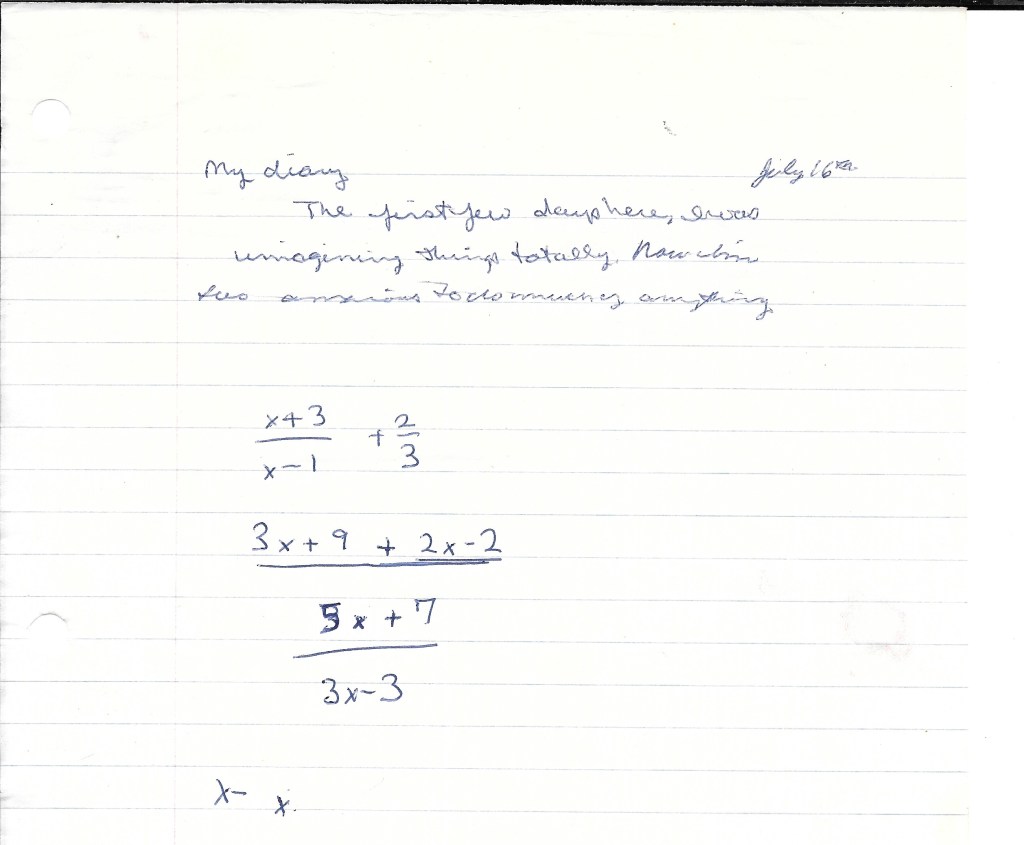 My diary July 16th
The first few days here, I was
imagining things totally. Now I'm
too anxious to do much of anything
x+3 2
x-1 + 3
3x+9 + 2x-2
5x+7
3x-3
x- x.